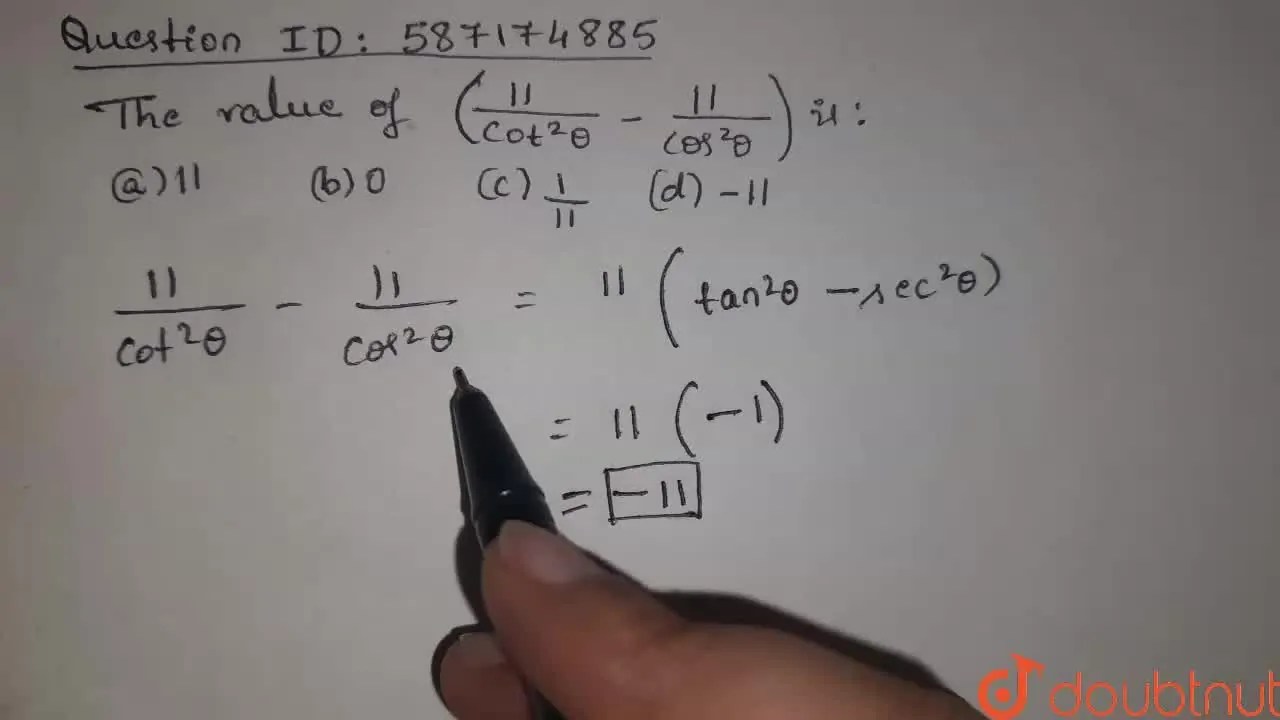 Question ID: 587174885
The value of (11/cot²θ - 11/cos²θ) is:
(a) 11 (b) 0 (c) 1/11 (d) -11
11/cot²θ - 11/cos²θ = 11 (tan²θ - sec²θ)
= 11 (-1)
= -11
doubtnut